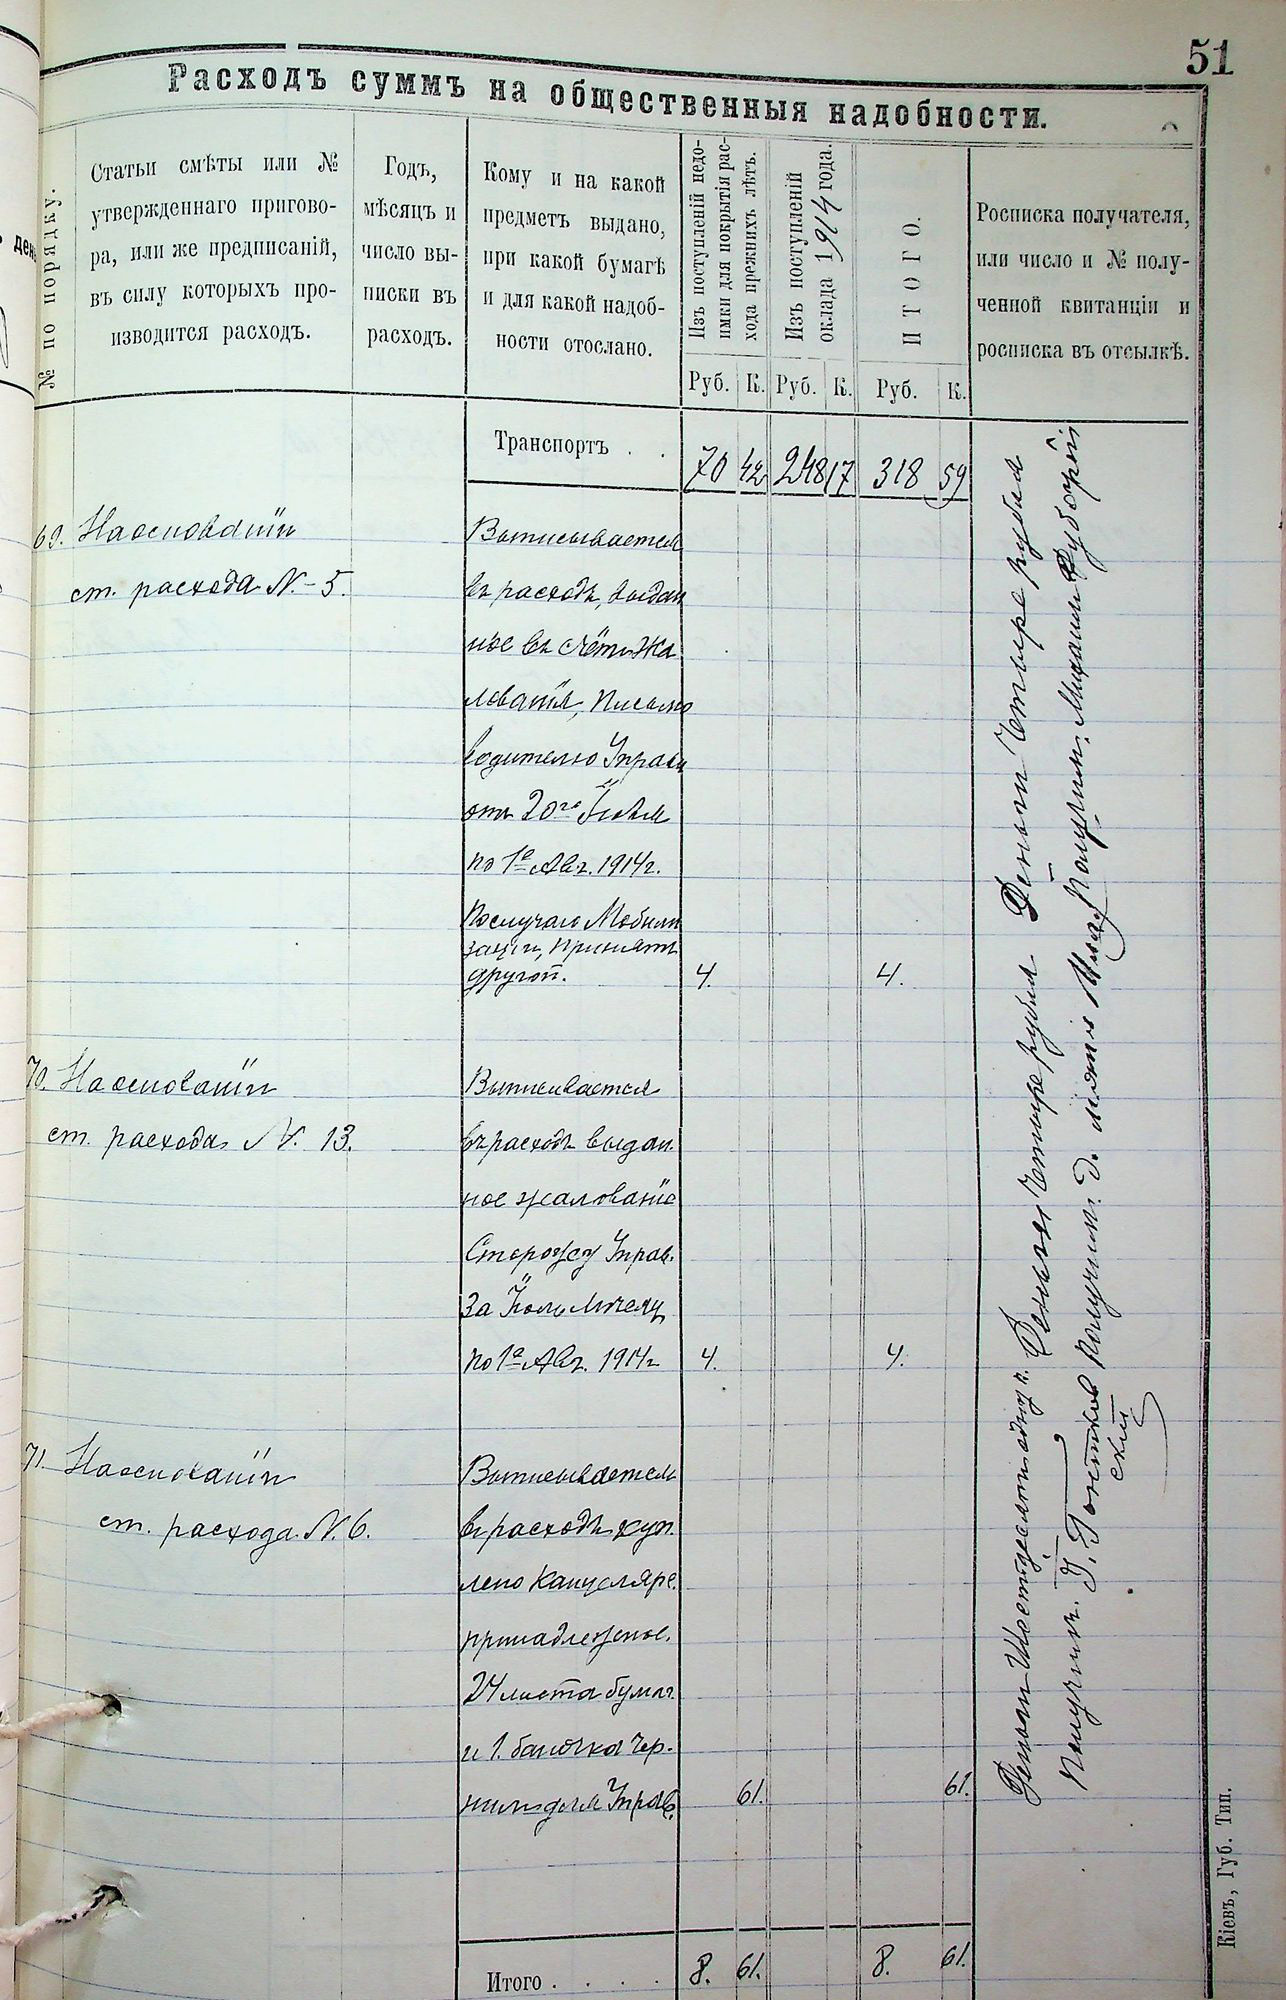 51
Расходъ суммъ на общественныя надобности.
№ по порядку.
Статьи смѣты или №
утвержденнаго пригово-
ра, или же предписаній,
въ силу которыхъ про-
изводится расходъ.
Годъ,
мѣсяцъ и
число вы-
писки въ
расходъ.
Кому и на какой
предметъ выдано,
при какой бумагѣ
и для какой надоб-
ности отослано.
Изъ поступленій недо-
имки для покрытія рас-
хода прежнихъ лѣтъ.
Изъ поступленій
оклада 1914 года.
ИТОГО.
Росписка получателя,
или число и № полу-
ченной квитанціи и
росписка въ отсылкѣ.
Руб. К. Руб. К. Руб. К.
Транспортъ . . 70 42 248 17 318 59
69. На основаніи
ст. расхода №-5.
Выписывается
въ расходъ, выдан
ное въ счётъ жа
лованія, писмо
водителю Управы
отъ 20го Іюля
по 1е Авг. 1914 г.
По случаю Мобили
заціи, принятъ
другой. 4. 4.
Деньги Четыре рубля
Получилъ Михаилъ
70. На основаніи
ст. расхода №. 13.
Выписивается
въ расходъ выдан.
ное жалованіе
Сторожу Управ.
За Іюль месяц
по 1е Авг. 1914 г 4. 4.
Деньги четыре рубля
получилъ
71. На основаніи
ст. расхода №. 6.
Выписывается
въ расходъ куп.
лено канцеляре.
принадлежное.
24 листа бумаг
и 1. баночка чер.
нилъ для Управ. 61. 61.
Деньги Шестдесятъ одну к.
Получилъ.
Итого . . . . 8. 61. 8. 61.
Кіевъ, Губ. Тип.